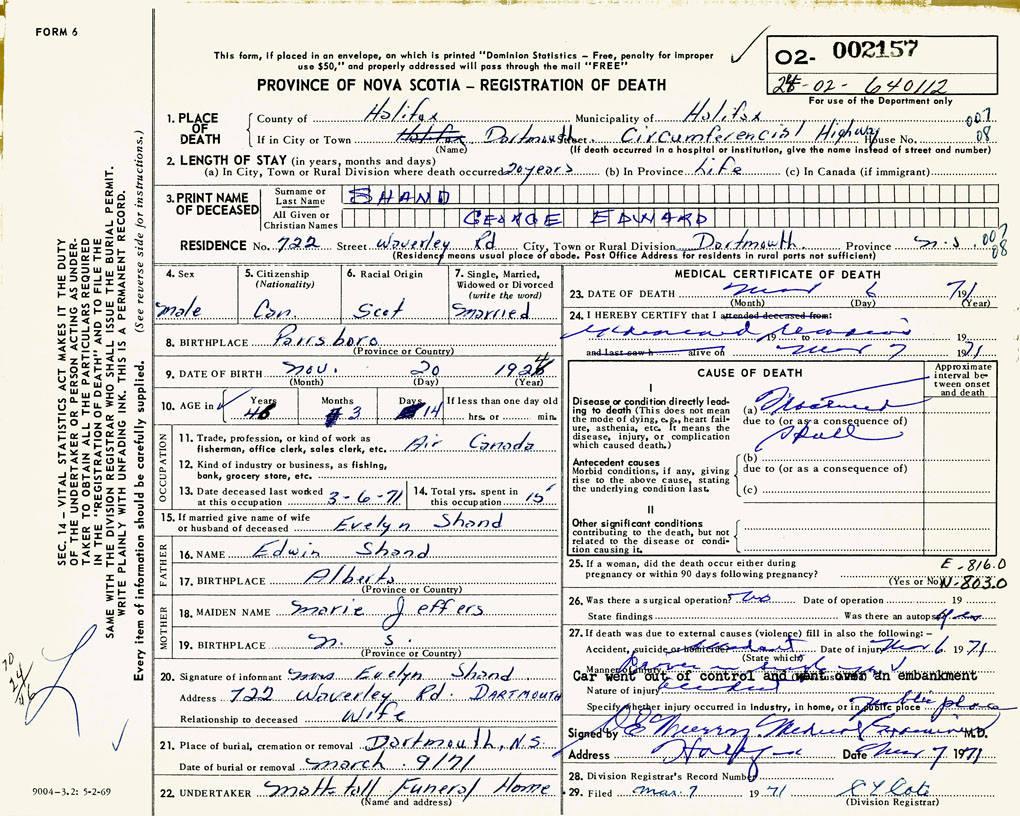 FORM 6
This form, if placed in an envelope, on which is printed "Dominion Statistics – Free, penalty for improper
use $50," and properly addressed will pass through the mail "FREE"
PROVINCE OF NOVA SCOTIA – REGISTRATION OF DEATH
02- 002157
24-02-640112
For use of the Department only
1. PLACE OF DEATH
County of Halifax Municipality of Halifax 007
If in City or Town Halifax Dartmouth Street Circumferencial Highway House No. 08
(Name) (If death occurred in a hospital or institution, give the name instead of street and number)
2. LENGTH OF STAY (in years, months and days)
(a) In City, Town or Rural Division where death occurred 20 years (b) In Province Life (c) In Canada (if immigrant)
3. PRINT NAME OF DECEASED
Surname or Last Name SHAND
All Given or Christian Names GEORGE EDWARD
RESIDENCE No. 722 Street Waverley Rd City, Town or Rural Division Dartmouth Province N.S. 007 08
(Residency means usual place of abode. Post Office Address for residents in rural parts not sufficient)
4. Sex
male
5. Citizenship (Nationality)
Can.
6. Racial Origin
Scot
7. Single, Married, Widowed or Divorced (write the word)
Married
8. BIRTHPLACE Parrsboro
(Province or Country)
9. DATE OF BIRTH Nov. 20 1924
(Month) (Day) (Year)
10. AGE in Years 46 Months 3 Days 14 If less than one day old
hrs. or min.
OCCUPATION
11. Trade, profession, or kind of work as fisherman, office clerk, sales clerk, etc. Air Canada
12. Kind of industry or business, as fishing, bank, grocery store, etc.
13. Date deceased last worked at this occupation 3-6-71
14. Total yrs. spent in this occupation 15
15. If married give name of wife or husband of deceased Evelyn Shand
FATHER
16. NAME Edwin Shand
17. BIRTHPLACE Alberta
(Province or Country)
MOTHER
18. MAIDEN NAME Marie Jeffers
19. BIRTHPLACE N. S.
(Province or Country)
20. Signature of informant Mrs. Evelyn Shand
Address 722 Waverley Rd. DARTMOUTH
Relationship to deceased Wife
21. Place of burial, cremation or removal Dartmouth, N.S.
Date of burial or removal March 9/71
22. UNDERTAKER Mattatall Funeral Home
(Name and address)
MEDICAL CERTIFICATE OF DEATH
23. DATE OF DEATH Mar 6 1971
(Month) (Day) (Year)
24. I HEREBY CERTIFY that I attended deceased from:
19 to 19
and last saw h alive on Mar 7 1971
CAUSE OF DEATH
Approximate interval between onset and death
I
Disease or condition directly leading to death (This does not mean the mode of dying, e.g., heart failure, asthenia, etc. It means the disease, injury, or complication which caused death.)
(a) Fractured
due to (or as a consequence of)
Skull
Antecedent causes
Morbid conditions, if any, giving rise to the above cause, stating the underlying condition last.
(b)
due to (or as a consequence of)
(c)
II
Other significant conditions contributing to the death, but not related to the disease or condition causing it.
25. If a woman, did the death occur either during pregnancy or within 90 days following pregnancy?
(Yes or No)
E-816.0
N-803.0
26. Was there a surgical operation? No Date of operation 19
State findings Was there an autopsy? Yes
27. If death was due to external causes (violence) fill in also the following: –
Accident, suicide, or homicide? Accident Date of injury Mar 6 1971
(State which)
Manner of injury
Car went out of control and went over an embankment
Nature of injury accident
Specify whether injury occurred in industry, in home, or in public place public place
Signed by Medical Examiner M.D.
Address Halifax Date Mar 7 1971
28. Division Registrar's Record Number
29. Filed Mar. 7 1971
(Division Registrar)
SEC. 14 – VITAL STATISTICS ACT MAKES IT THE DUTY
OF THE UNDERTAKER OR PERSON ACTING AS UNDER-
TAKER TO OBTAIN ALL THE PARTICULARS REQUIRED
IN THE "REGISTRATION OF DEATH" AND TO FILE THE
SAME WITH THE DIVISION REGISTRAR WHO SHALL ISSUE THE BURIAL PERMIT.
WRITE PLAINLY WITH UNFADING INK. THIS IS A PERMANENT RECORD.
Every item of information should be carefully supplied. (See reverse side for instructions.)
70
24
46
9004-3.2: 5-2-69